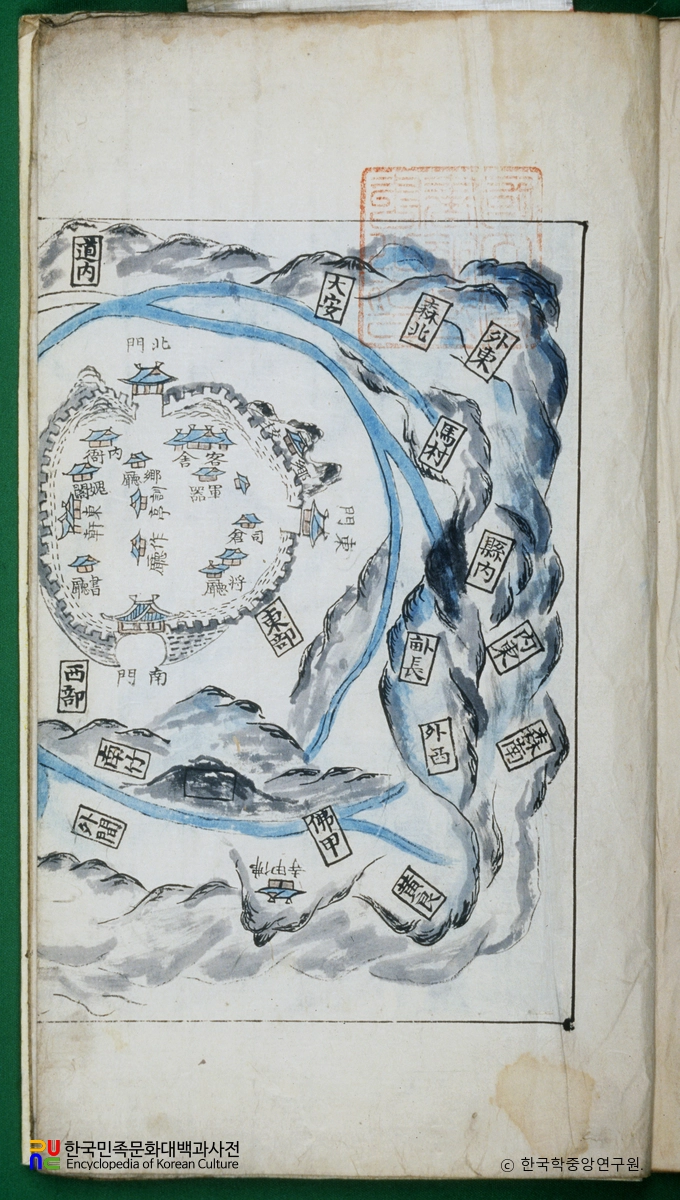 道内
大安
森北
外東
北門
馬村
内衙
客舎
鄕廳
軍器
訓
亭
東軒
東門
司倉
作廳
將廳
書廳
縣内
東部
内東
南門
西部
森南
外西
外間
佛甲
佛甲寺
한국민족문화대백과사전
Encyclopedia of Korean Culture
© 한국학중앙연구원